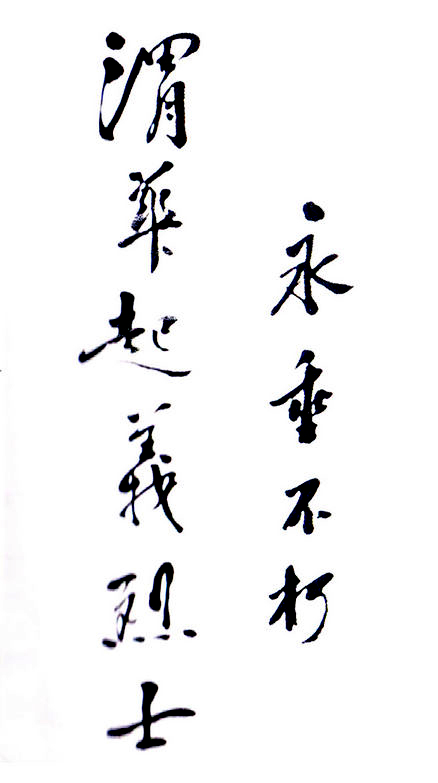 渭華起義烈士
永垂不朽